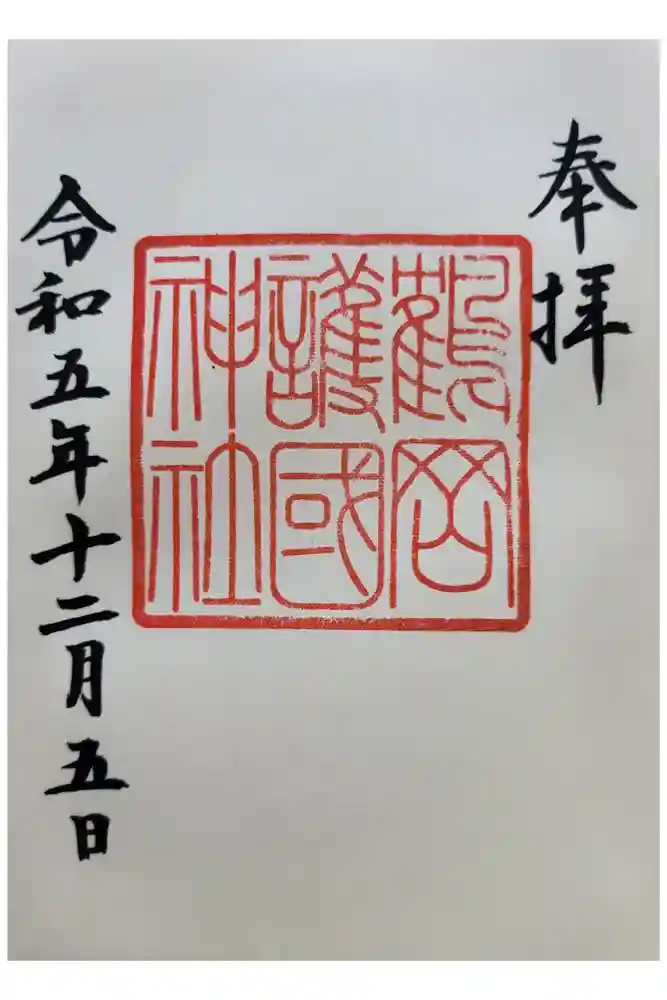 奉拝
鶴岡
護國
神社
令和五年十二月五日